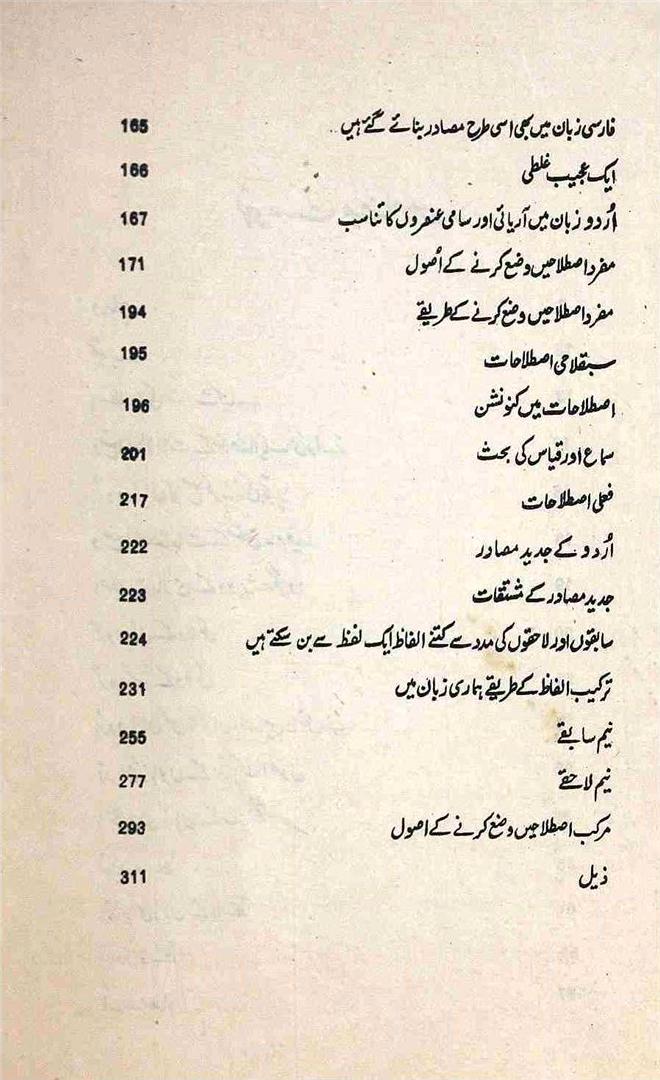 فارسی زبان میں بھی اسی طرح مصادر بنائے گئے ہیں 165
ایک عجیب غلطی 166
اُردو زبان میں آریائی اور سامی عنصروں کا تناسب 167
مفرد اصطلاحیں وضع کرنے کے اُصول 171
مفرد اصطلاحیں وضع کرنے کے طریقے 194
سبقلاحی اصطلاحات 195
اصطلاحات میں کنونشن 196
سماع اور قیاس کی بحث 201
فعلی اصطلاحات 217
اُردو کے جدید مصادر 222
جدید مصادر کے مشتقات 223
سابقوں اور لاحقوں کی مدد سے کتنے الفاظ ایک لفظ سے بن سکتے ہیں 224
ترکیب الفاظ کے طریقے ہماری زبان میں 231
نیم سابقے 255
نیم لاحقے 277
مرکب اصطلاحیں وضع کرنے کے اصول 293
ذیل 311